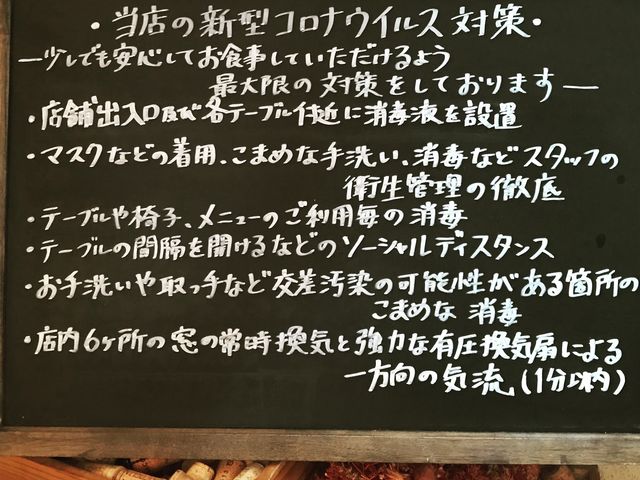 ・当店の新型コロナウイルス対策・
―少しでも安心してお食事していただけるよう
最大限の対策をしております―
・店舗出入口及び各テーブル付近に消毒液を設置
・マスクなどの着用、こまめな手洗い、消毒などスタッフの
衛生管理の徹底
・テーブルや椅子、メニューのご利用毎の消毒
・テーブルの間隔を開けるなどのソーシャルディスタンス
・お手洗いや取っ手など交差汚染の可能性がある箇所の
こまめな消毒
・店内6ヶ所の窓の常時換気と強力な有圧換気扇による
一方向の気流(1分以内)